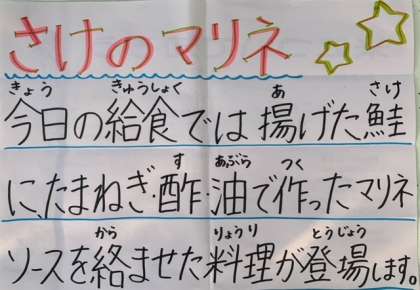 さけのマリネ
きょう きゅうしょく あ さけ
今日の給食では揚げた鮭
す あぶら つく
に、たまねぎ・酢・油で作ったマリネ
から りょうり とうじょう
ソースを絡ませた料理が登場します。